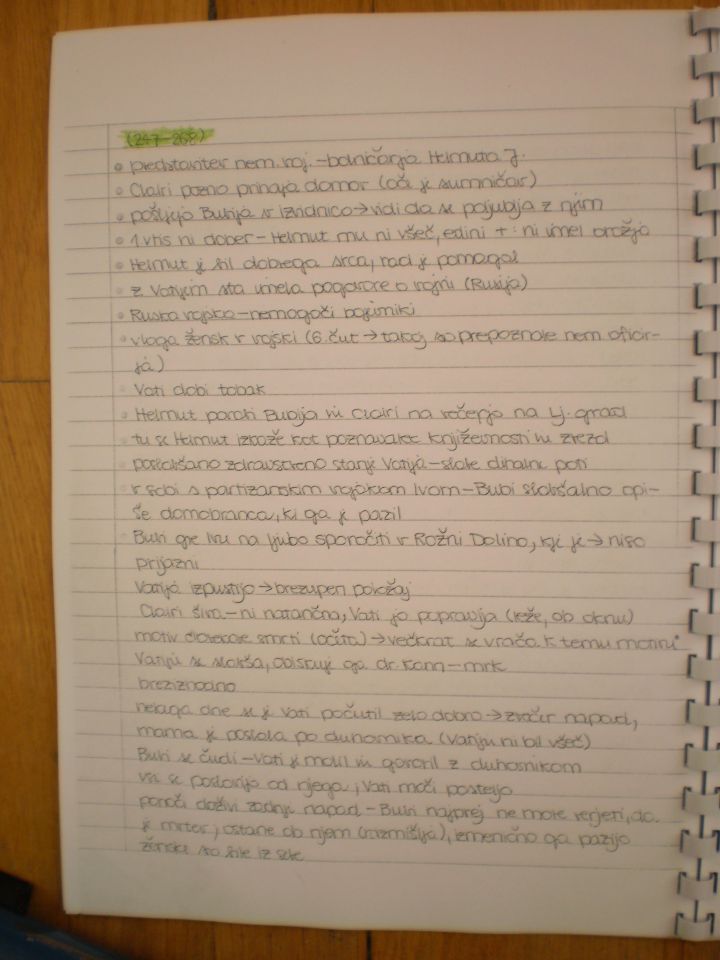 (247-268)
• predstavitev nem. voj. - bolničarja Helmuta J.
• Clairi pozno prihaja domov (oče je sumničav)
• pošljejo Bubija v izvidnico → vidi da se poljublja z njim
• 1. vtis ni dober - Helmut mu ni všeč, edini + : ni imel orožja
• Helmut je bil dobrega srca, rad je pomagal
• z Vatijem sta imela pogovore o vojni (Rusija)
• Ruska vojska - nemogoči bojevniki
• vloga žensk v vojski (6. čut → takoj so prepoznale nem. oficir-
ja)
• Vati dobi tobak
• Helmut povabi Bubija in Clairi na večerjo na Lj. grad
• tu se Helmut izkaže kot poznavalec književnosti in zvezd
• poslabšano zdravstveno stanje Vatija - slabe dihalne poti
• v sobi s partizanskim vojakom Ivom - Bubi slabšalno opi-
še domobranca, ki ga je pazil
Bubi gre Ivu na ljubo sporočiti v Rožni Dolino, kje je → niso
prijazni
Vatija izpustijo → brezupen položaj
Clairi šiva - ni natančna, Vati jo popravlja (leže, ob oknu)
motiv očetove smrti (očita) → večkrat se vrača k temu motivu
Vatiju se slabša, obiskuje ga dr. Kann - mrk
brezizhodno
nekega dne se je Vati počutil zelo dobro → zvečer napad,
mama je poslala po duhovnika (Vatiju ni bil všeč)
Bubi se čudi - Vati je molil in govoril z duhovnikom
vsi se poslovijo od njega, Vati moči posteljo
ponoči doživi zadnji napad - Bubi najprej ne more verjeti, da
je mrtev, ostane ob njem (razmišlja), izmenično ga pazijo
ženske so bile iz sebe